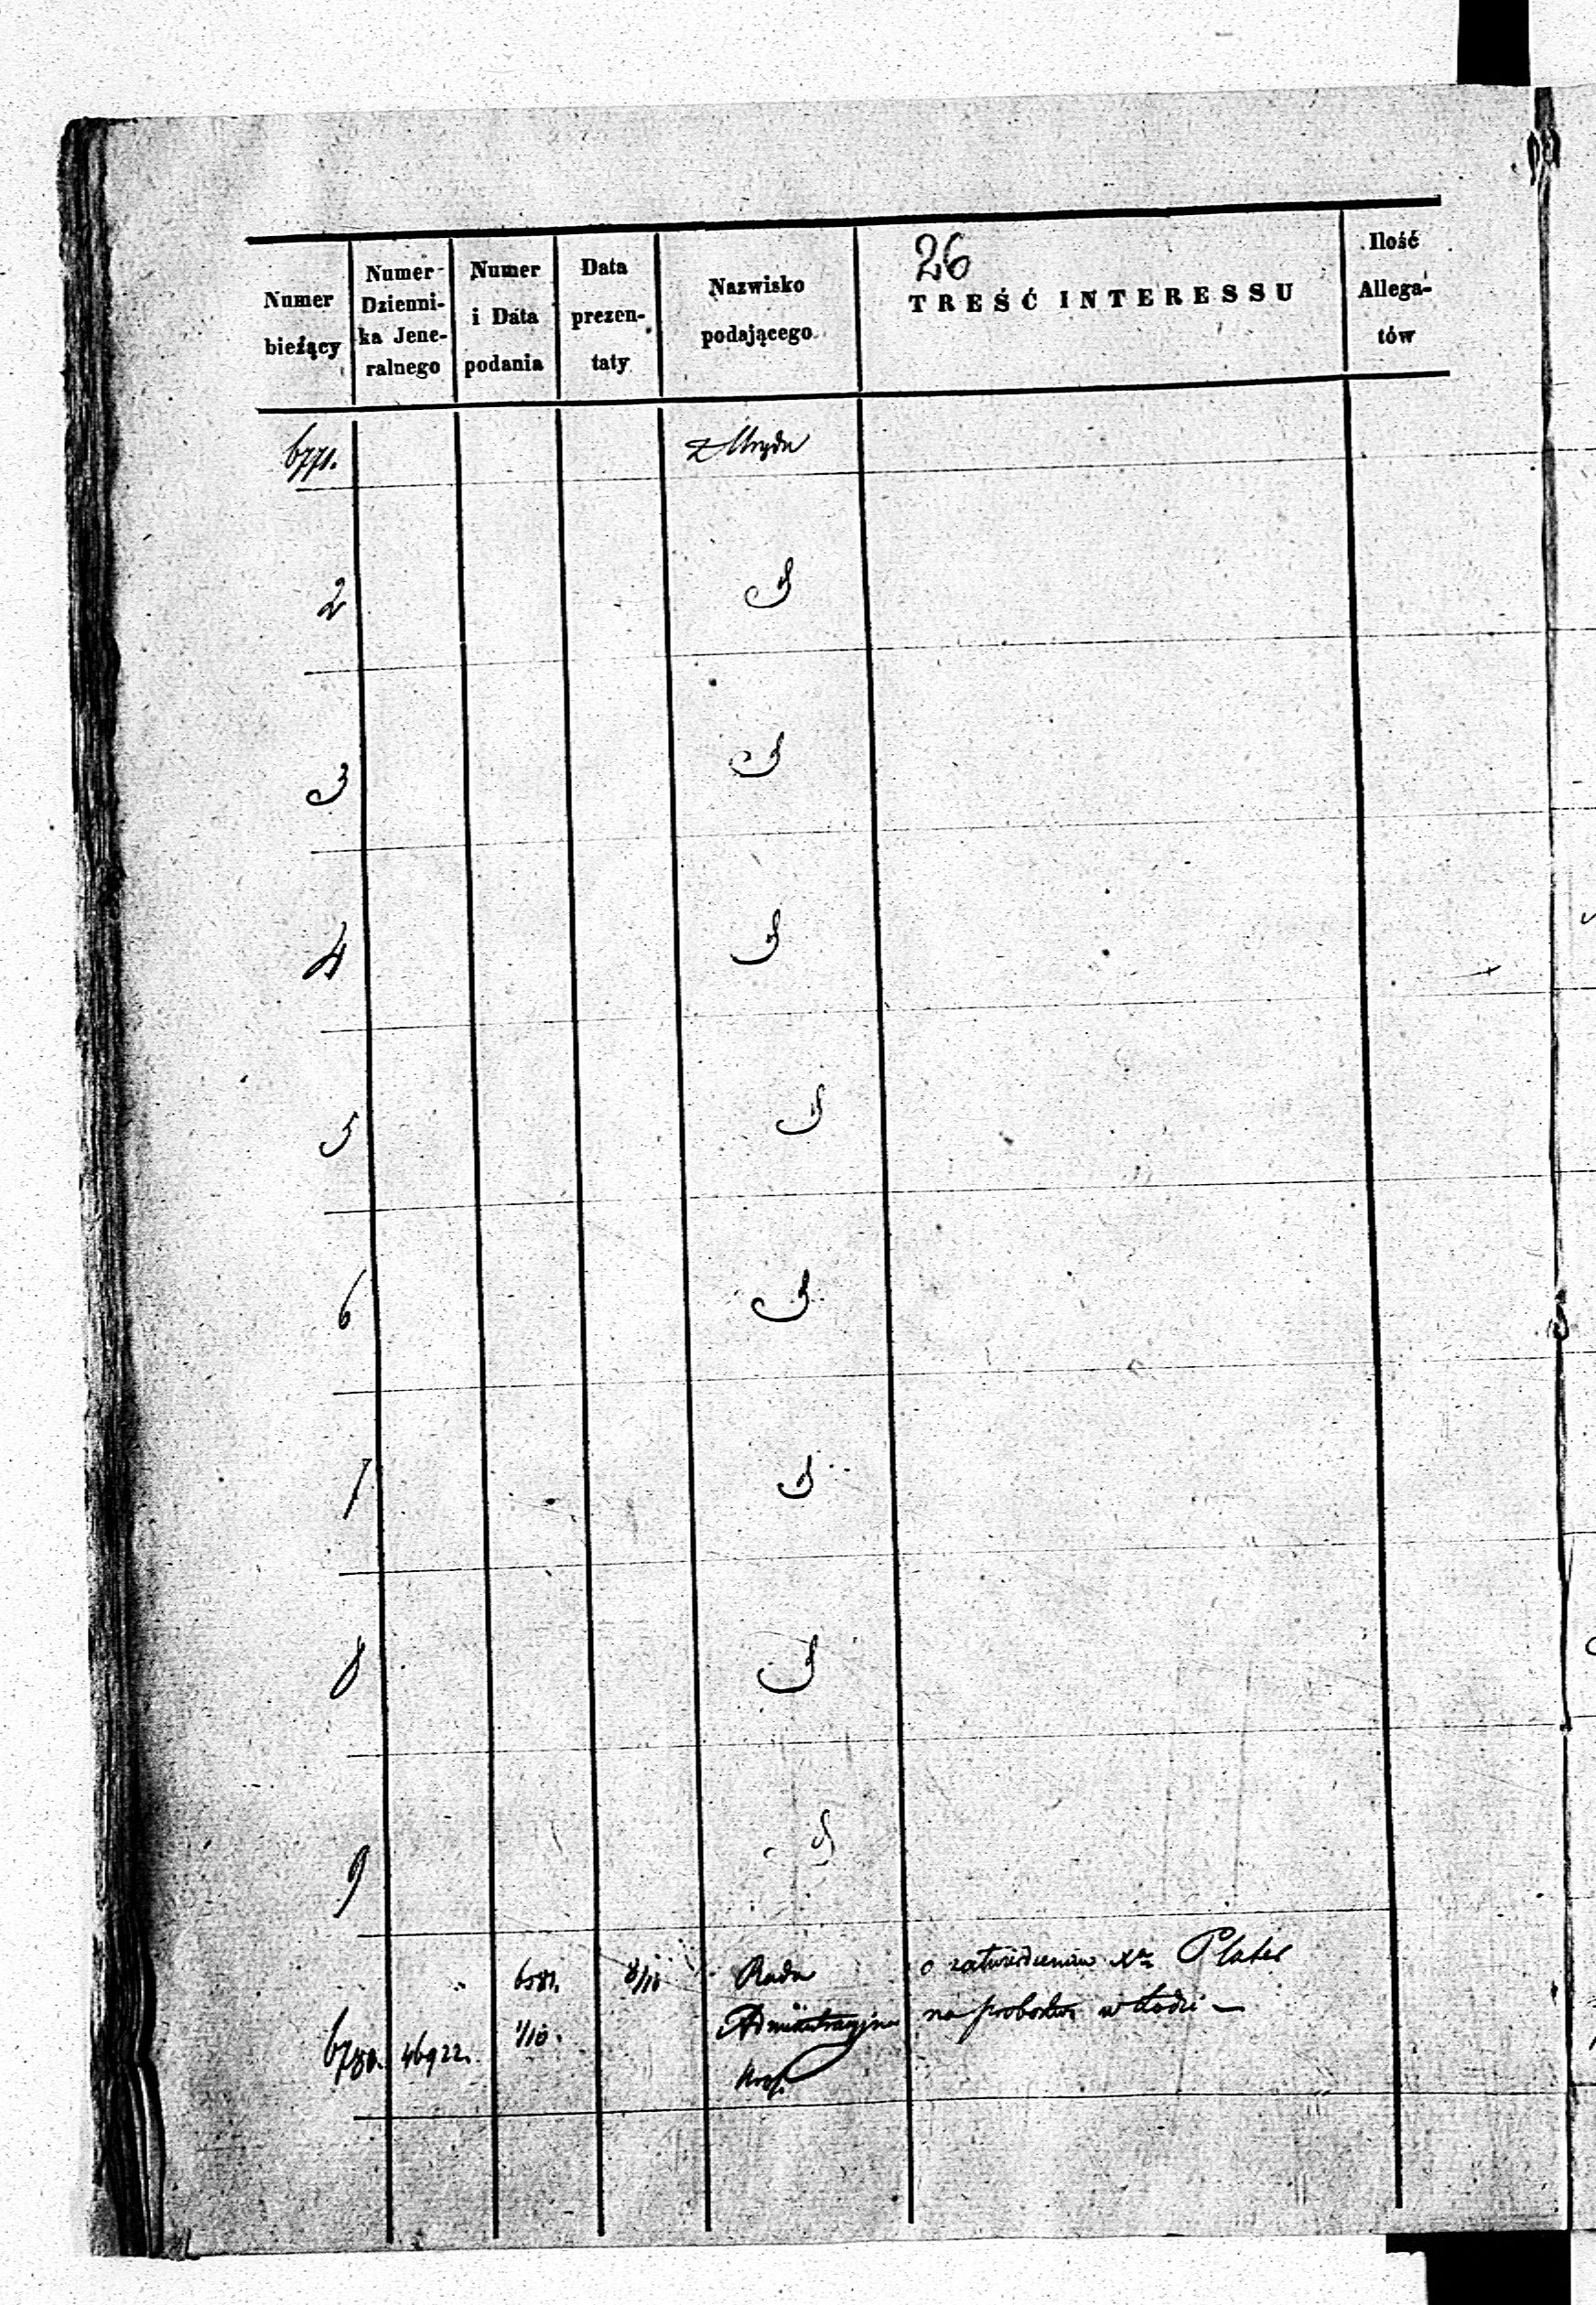 26
Numer bieżący
Numer Dziennika Jeneralnego
Numer i Data podania
Data prezentaty
Nazwisko podającego
TREŚĆ INTERESSU
Ilość Allegatów
6771. z Urzędu
2
3
4
5
6
7
8
9
8/10 Rada o zatwierdzeniu Xa Plater
1/10. Administracyjna na probostwo w Łodzi —
6780. 46922. Król.